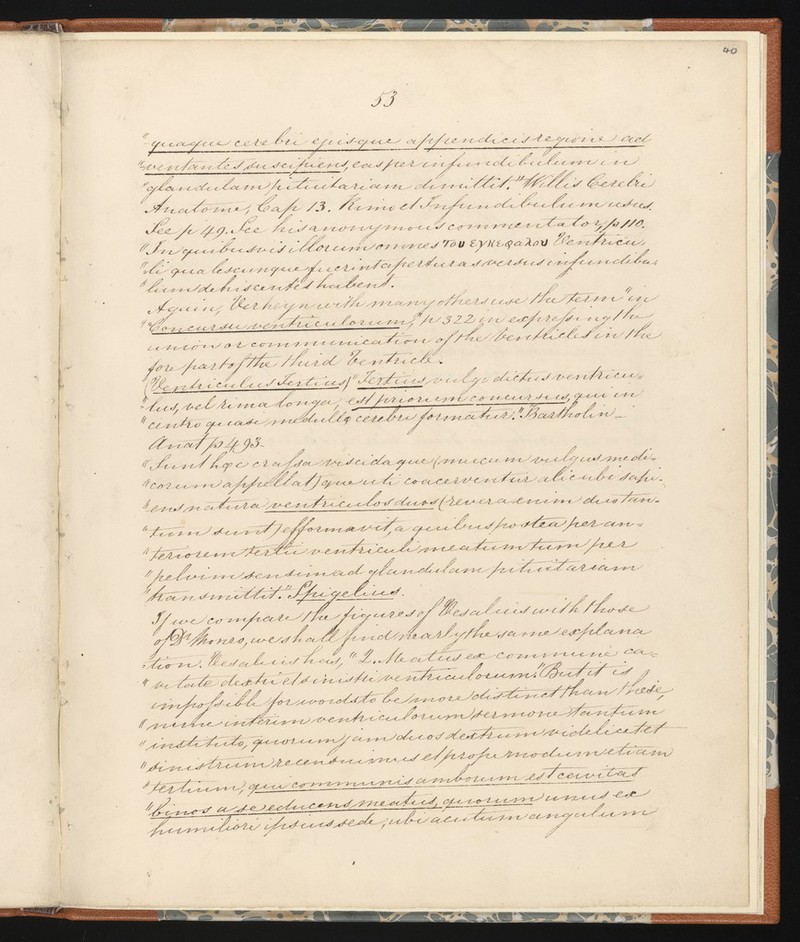 40
53
"quaque cerebri ejusque appendicis regione ad
"ventantes suscipiens, eas per infundibulum in
"glandulam pituitariam dimittit." Willis Cerebri
Anatome, Cap 13. Rima et Infundibulum usus.
See p 49. See his anonymous commentator, p 110.
"In quibusvis illorum omnes του εγκεφαλου Ventricu
"li qualescunque fuerint aperturas versus infundibu=
"lum dehiscentes habent.
Again, Verheyn with many others use the term "in
"Concursu ventriculorum," p 322 in expressing the
union or communication of the Ventricles in the
fore part of the third Ventricle.
(Ventriculus Tertius) "Tertius vulgo dictus ventricu=
"lus, vel rima longa, est priorum concursus, qui in
"centro quasi medullæ cerebri formatur." Bartholin_
Anat p 493.
"Sunt hæc crassa viscidaque (mucum vulgus medi=
"corum appellat) que uti coacerventur alicubi sapi=
"ens natura ventriculos duos (revera enim duo tan=
"tum sunt) efformavit, a quibus postea per an=
"teriorem tertii ventriculi meatum tum per
"pelvim sensim ad glandulam pituitariam
"transmittit." Spigelius.
If we compare the figures of Vesalius with those
of Dr Monro, we shall find nearly the same explana
=tion. Vesalius has, "L. Meatus ex communi ca=
"vitate dextri et sinistri ventriculorum." But it is
impossible for words to be more distinct than these
"nunc interim ventriculorum sermone tantum
"instituto, quorum jam duos dextrum videlicet et
"sinistrum recensuimus et propemodum etiam
"tertium, qui communis amborum est cavitas
"binos a se educens meatus, quorum unus ex
humiliori ipsius sede, ubi acutum angulum